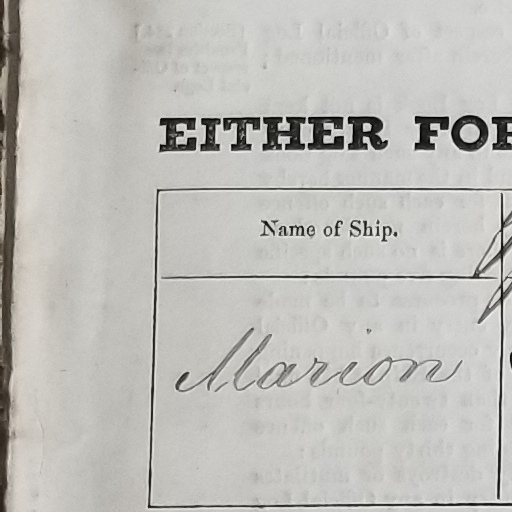 EITHER FOR
Name of Ship.
Marion